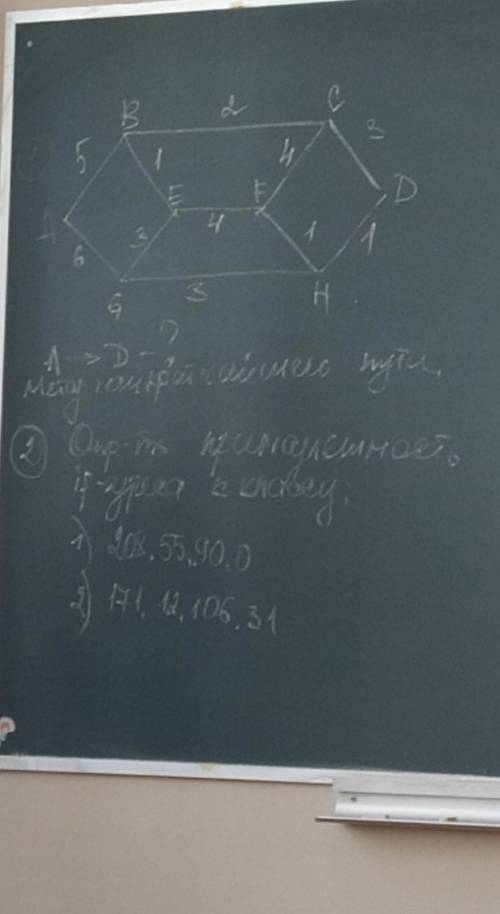 B 2 C
5 1 4 3
A E F D
4
6 3 1 1
G 3 H
A → D - ?
Метод наикратчайшего пути.
② Опр-ть принадлежность
ip-адреса к классу:
1) 208.55.90.0
2) 171.12.106.31